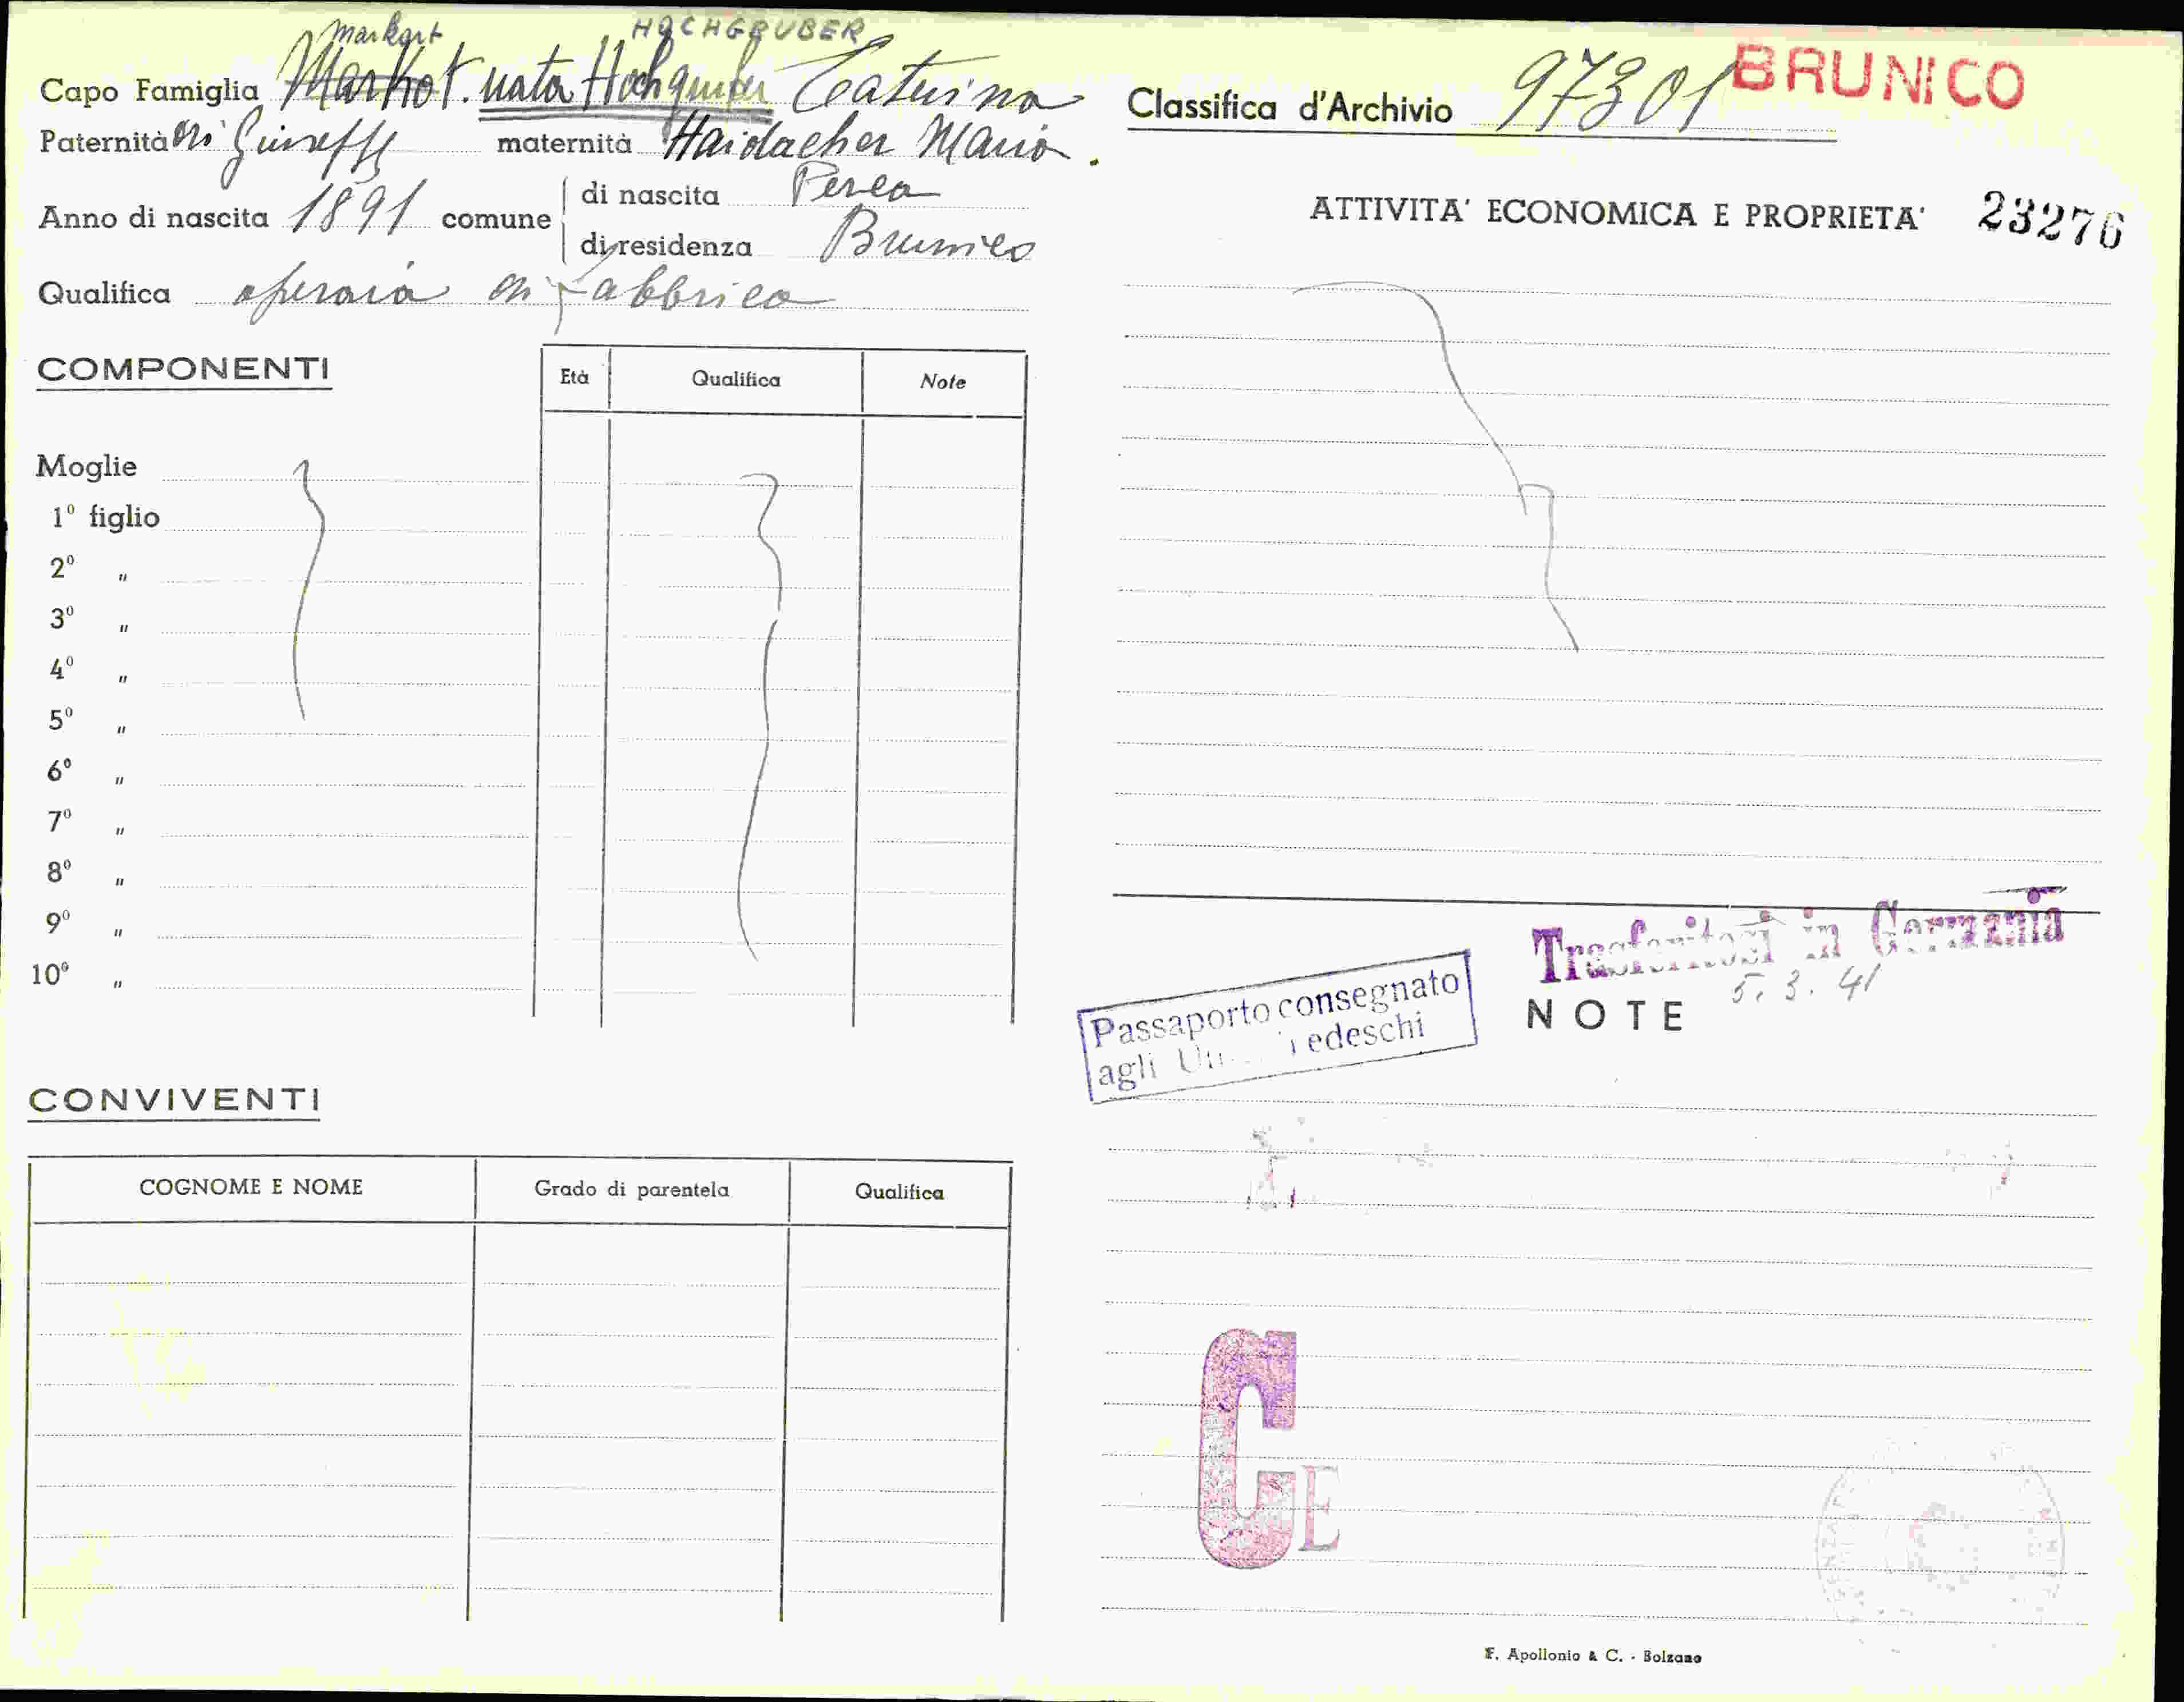 Markart HOCHGRUBER
Capo Famiglia Markot. nata Hochgruber Caterina
Paternità di Giuseppe maternità Haidacher Maria.
Anno di nascita 1891 comune di nascita Perca
di residenza Brunico
Qualifica operaia di fabbrica
COMPONENTI
Età Qualifica Note
Moglie
1° figlio
2° "
3° "
4° "
5° "
6° "
7° "
8° "
9° "
10° "
CONVIVENTI
COGNOME E NOME Grado di parentela Qualifica
Classifica d'Archivio 97301 BRUNICO
ATTIVITA' ECONOMICA E PROPRIETA' 23276
Trasferitosi in Germania
5. 3. 41
NOTE
Passaporto consegnato
agli Tedeschi
C E
F. Apollonio & C. - Bolzano